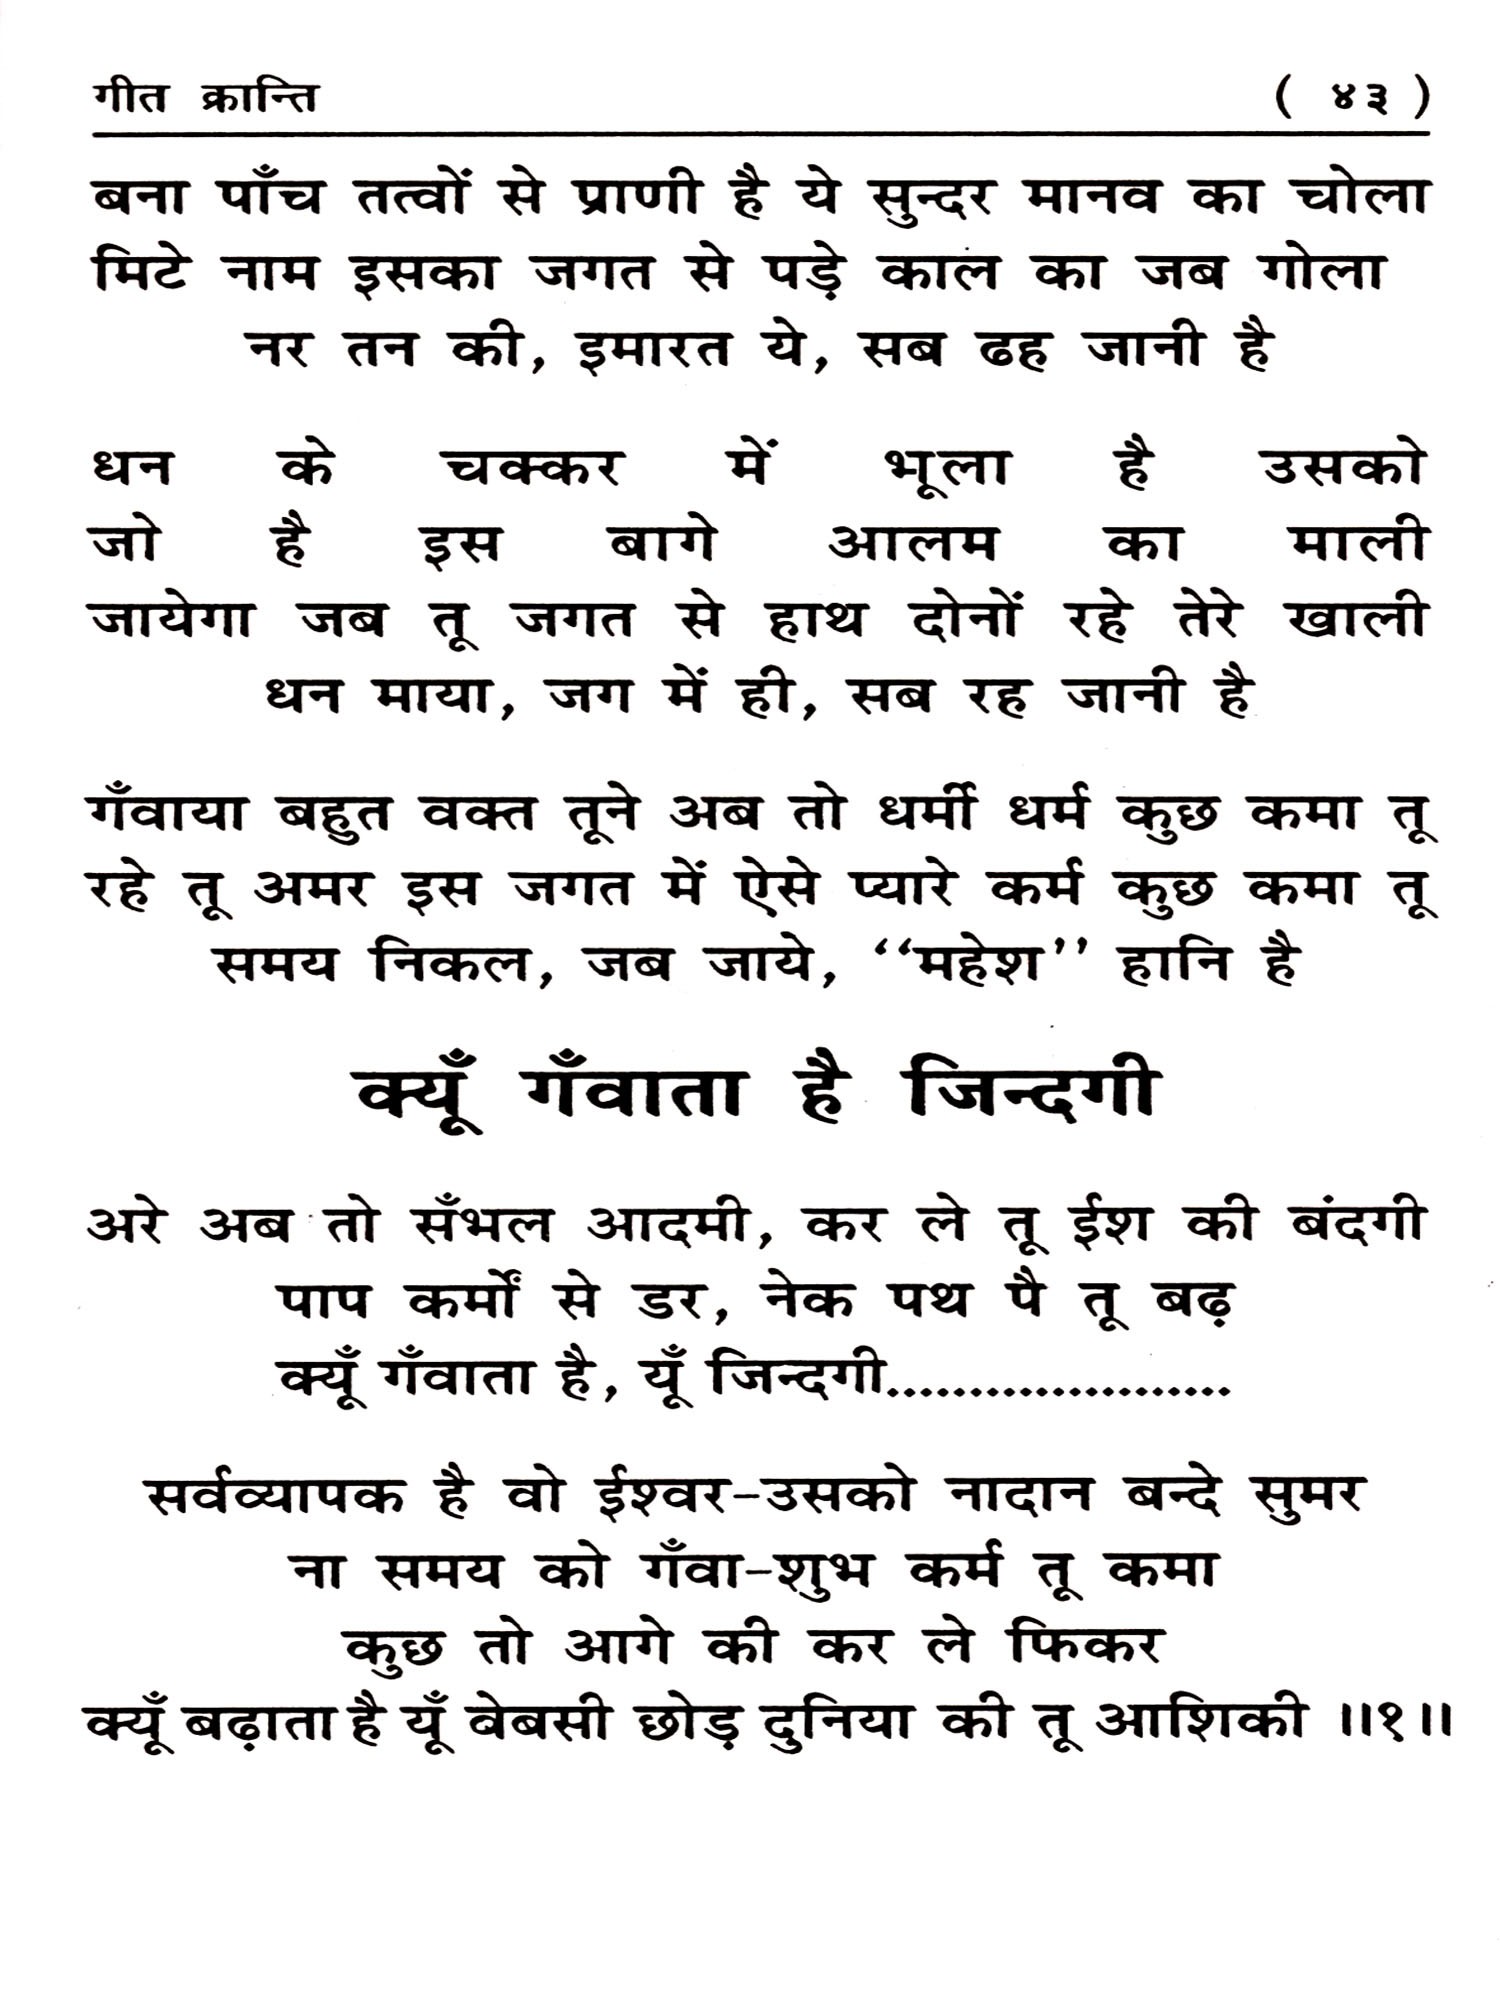 गीत क्रान्ति ( ४३ )
बना पाँच तत्वों से प्राणी है ये सुन्दर मानव का चोला
मिटे नाम इसका जगत से पड़े काल का जब गोला
नर तन की, इमारत ये, सब ढह जानी है
धन के चक्कर में भूला है उसको
जो है इस बागे आलम का माली
जायेगा जब तू जगत से हाथ दोनों रहे तेरे खाली
धन माया, जग में ही, सब रह जानी है
गँवाया बहुत वक्त तूने अब तो धर्मी धर्म कुछ कमा तू
रहे तू अमर इस जगत में ऐसे प्यारे कर्म कुछ कमा तू
समय निकल, जब जाये, ‘‘महेश’’ हानि है
क्यूँ गँवाता है जिन्दगी
अरे अब तो सँभल आदमी, कर ले तू ईश की बंदगी
पाप कर्मों से डर, नेक पथ पै तू बढ़
क्यूँ गँवाता है, यूँ जिन्दगी.....................
सर्वव्यापक है वो ईश्वर-उसको नादान बन्दे सुमर
ना समय को गँवा-शुभ कर्म तू कमा
कुछ तो आगे की कर ले फिकर
क्यूँ बढ़ाता है यूँ बेबसी छोड़ दुनिया की तू आशिकी ॥१॥